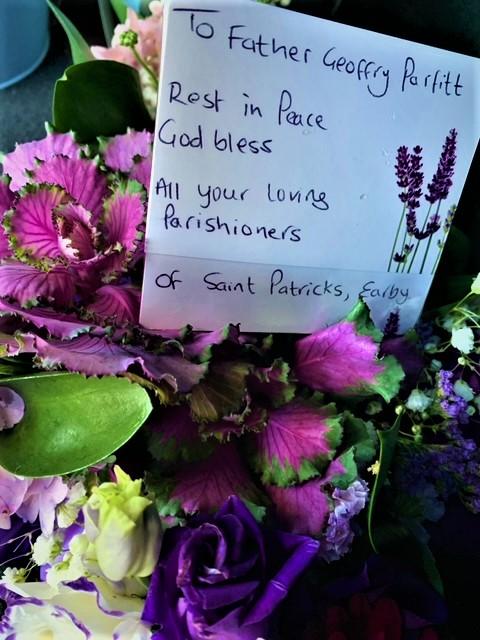 To Father Geoffry Parfitt
Rest in Peace
God bless
All your loving
Parishioners
of Saint Patricks, Earby